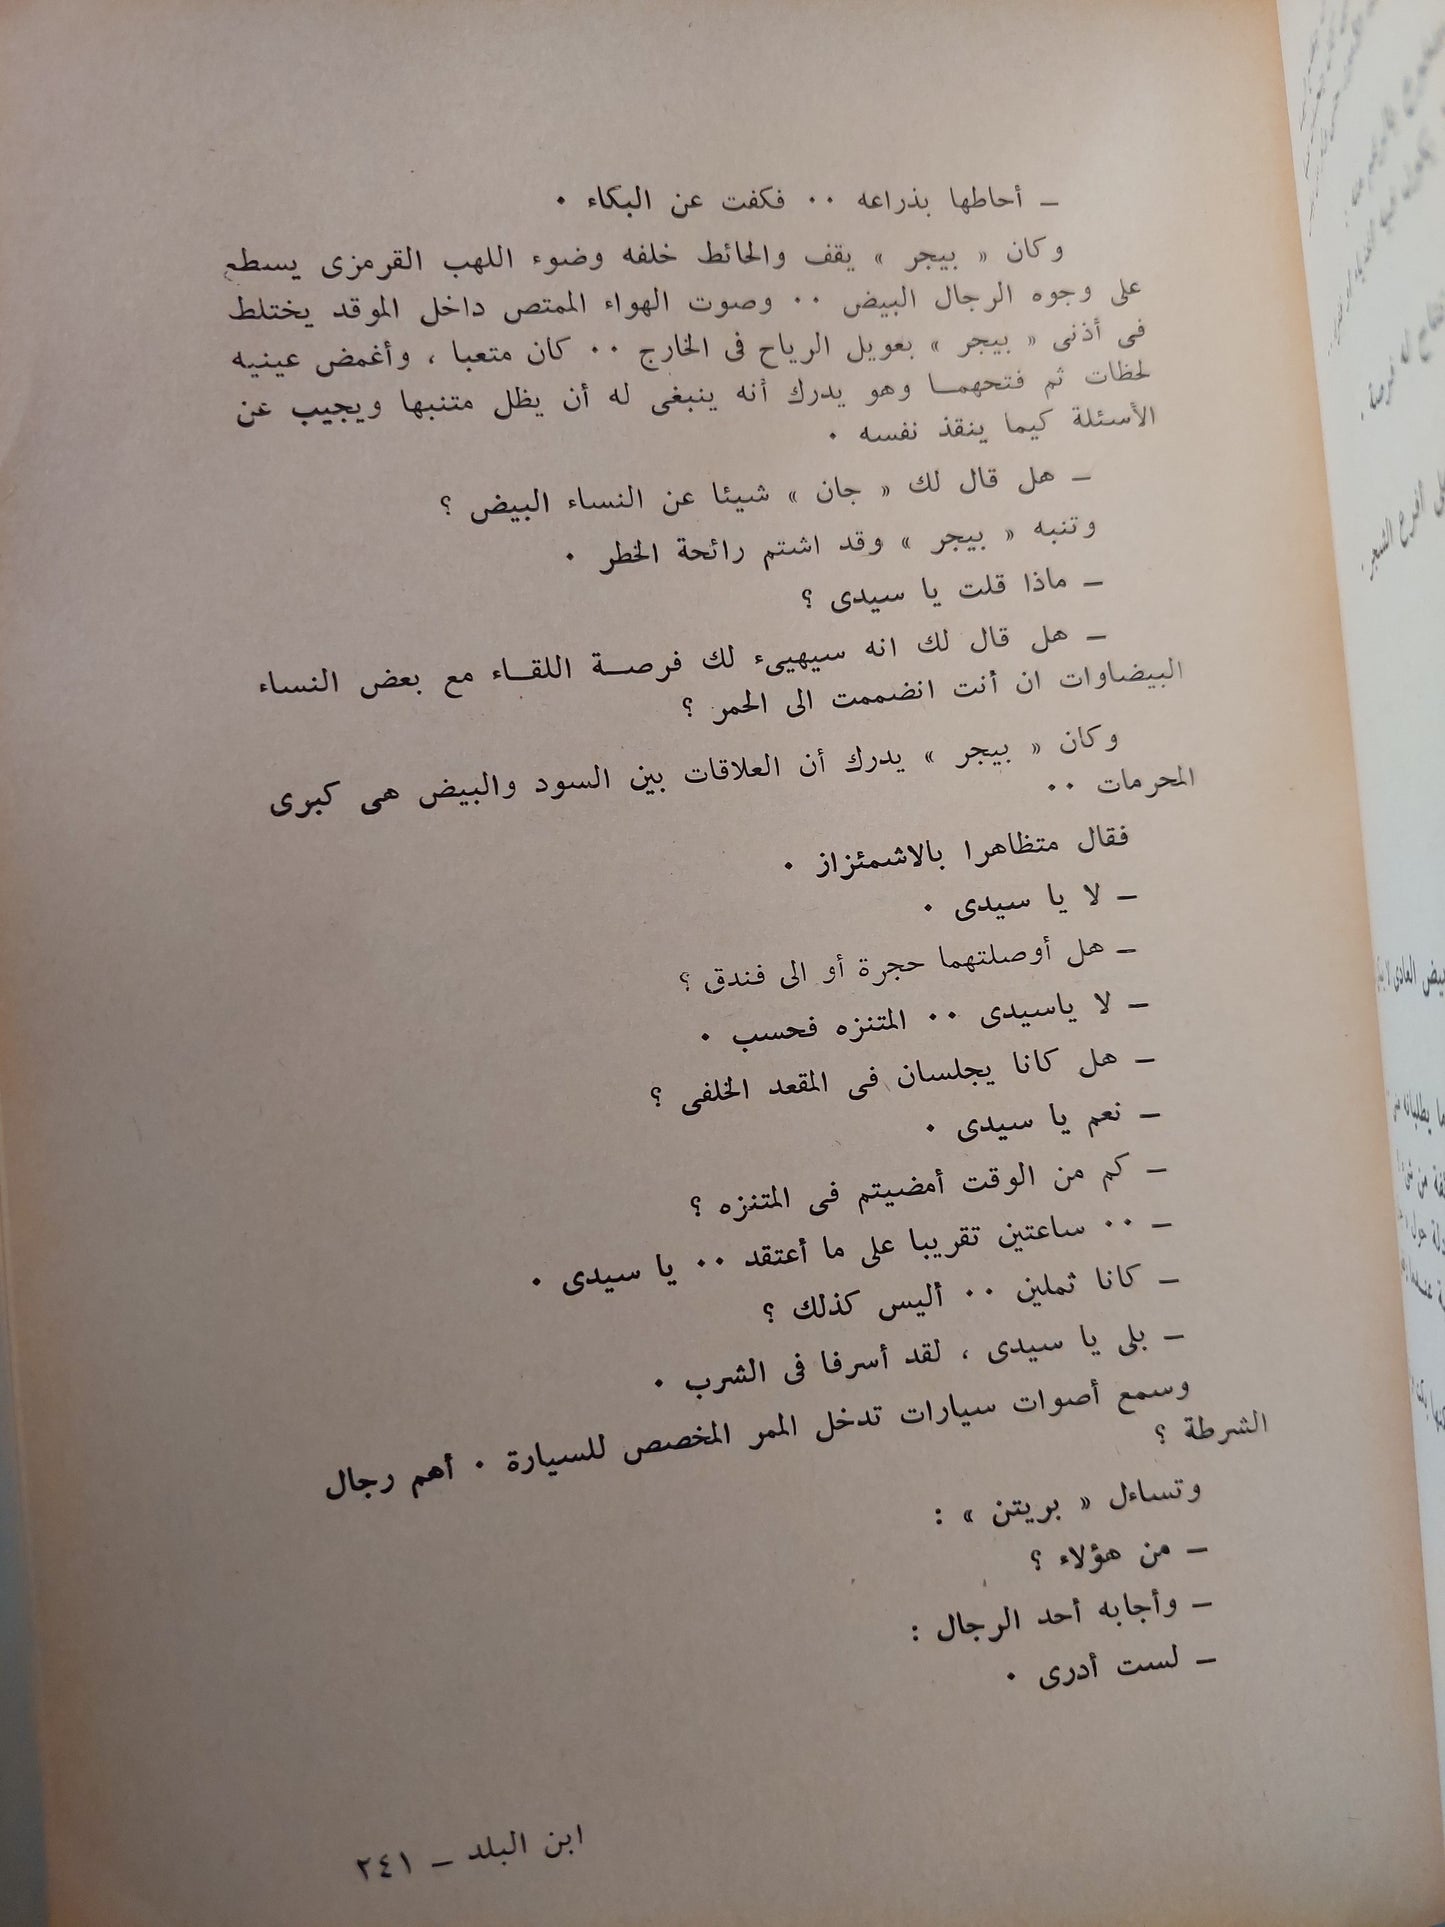 ـ أحاطها بذراعه ٠٠ فكفت عن البكاء ٠
وكان « بيجر » يقف والحائط خلفه وضوء اللهب القرمزى يسطع
على وجوه الرجال البيض ٠٠ وصوت الهواء الممتص داخل الموقد يختلط
فى أذنى « بيجر » بعويل الرياح فى الخارج ٠٠ كان متعبا ، وأغمض عينيه
لحظات ثم فتحهما وهو يدرك أنه ينبغى له أن يظل متنبها ويجيب عن
الأسئلة كيما ينقذ نفسه ٠
ـ هل قال لك « جان » شيئا عن النساء البيض ؟
وتنبه « بيجر » وقد اشتم رائحة الخطر ٠
ـ ماذا قلت يا سيدى ؟
ـ هل قال لك انه سيهيىء لك فرصة اللقاء مع بعض النساء
البيضاوات ان أنت انضممت الى الحمر ؟
وكان « بيجر » يدرك أن العلاقات بين السود والبيض هى كبرى
المحرمات ٠٠
فقال متظاهرا بالاشمئزاز ٠
ـ لا يا سيدى ٠
ـ هل أوصلتهما حجرة أو الى فندق ؟
ـ لا ياسيدى ٠٠ المتنزه فحسب ٠
ـ هل كانا يجلسان فى المقعد الخلفى ؟
ـ نعم يا سيدى ٠
ـ كم من الوقت أمضيتم فى المتنزه ؟
ـ ٠٠ ساعتين تقريبا على ما أعتقد ٠٠ يا سيدى ٠
ـ كانا ثملين ٠٠ أليس كذلك ؟
ـ بلى يا سيدى ، لقد أسرفا فى الشرب ٠
وسمع أصوات سيارات تدخل الممر المخصص للسيارة ٠ أهم رجال
الشرطة ؟
وتساءل « بريتن » :
ـ من هؤلاء ؟
ـ وأجابه أحد الرجال :
ـ لست أدرى ٠
ابن البلد ـ ٢٤١